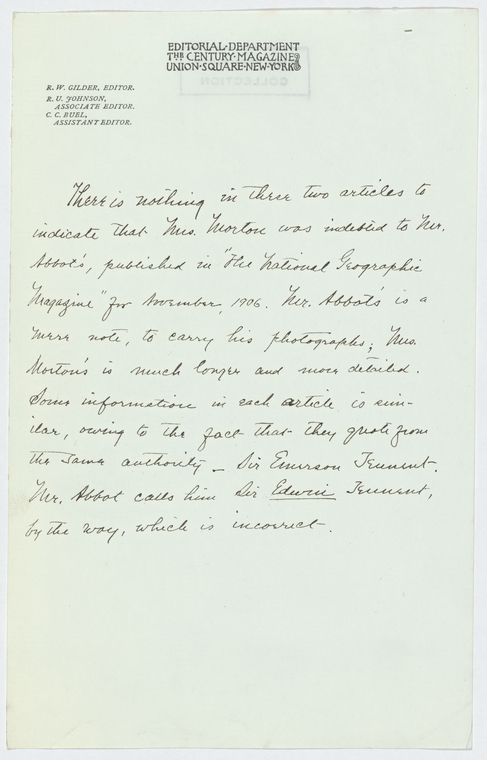 EDITORIAL·DEPARTMENT
THE CENTURY·MAGAZINE
UNION·SQUARE·NEW·YORK
R. W. GILDER, EDITOR.
R. U. JOHNSON,
ASSOCIATE EDITOR.
C. C. BUEL,
ASSISTANT EDITOR.
COLLECTION
There is nothing in these two articles to
indicate that Mrs. Morton was indebted to Mr.
Abbot's, published in "The National Geographic
Magazine" for November, 1906. Mr. Abbot's is a
mere note, to carry his photographs; Mrs.
Morton's is much longer and more detailed.
Some information in each article is sim-
ilar, owing to the fact that they quote from
the same authority – Sir Emerson Tennent.
Mr. Abbot calls him Sir Edwin Tennent,
by the way, which is incorrect.